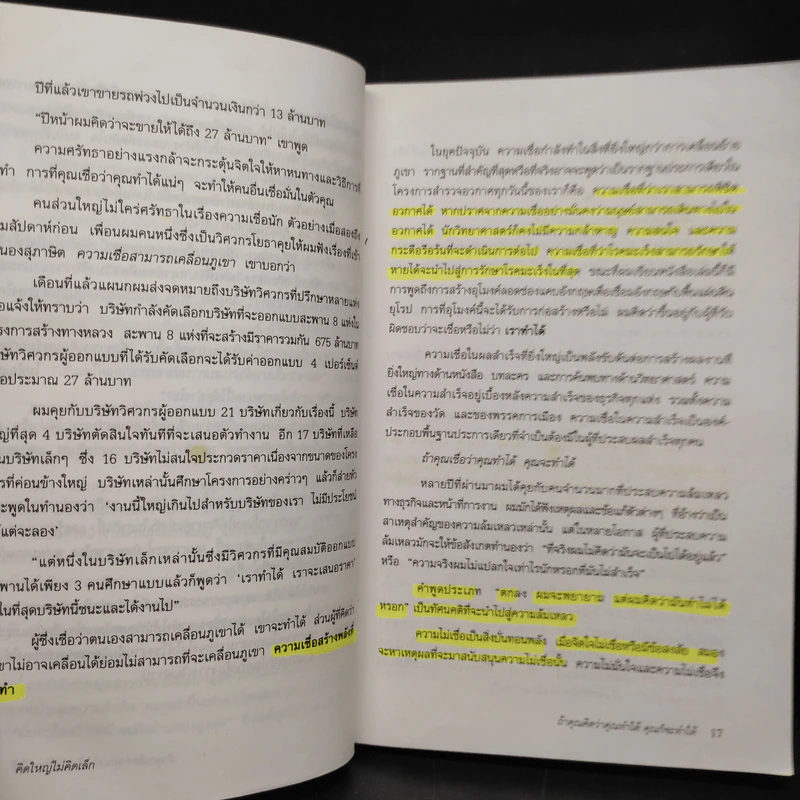 ปีที่แล้วเขาขายรถพ่วงไปเป็นจำนวนเงินกว่า 13 ล้านบาท
“ปีหน้าผมคิดว่าจะขายให้ได้ถึง 27 ล้านบาท” เขาพูด
ความศรัทธาอย่างแรงกล้าจะกระตุ้นจิตใจให้หาหนทางและวิธีการที่
ทำ การที่คุณเชื่อว่าคุณทำได้แน่ๆ จะทำให้คนอื่นเชื่อมั่นในตัวคุณ
คนส่วนใหญ่ไม่ใคร่ศรัทธาในเรื่องความเชื่อนัก ตัวอย่างเมื่อสองถึง
มสัปดาห์ก่อน เพื่อนผมคนหนึ่งซึ่งเป็นวิศวกรโยธาคุยให้ผมฟังเรื่องที่เข้า
นองสุภาษิต ความเชื่อสามารถเคลื่อนภูเขา เขาบอกว่า
เดือนที่แล้วแผนกผมส่งจดหมายถึงบริษัทวิศวกรที่ปรึกษาหลายแห่ง
อแจ้งให้ทราบว่า บริษัทกำลังคัดเลือกบริษัทที่จะออกแบบสะพาน 8 แห่งใน
งการสร้างทางหลวง สะพาน 8 แห่งที่จะสร้างมีราคารวมกัน 675 ล้านบาท
ริษัทวิศวกรผู้ออกแบบที่ได้รับคัดเลือกจะได้รับค่าออกแบบ 4 เปอร์เซ็นต์
อประมาณ 27 ล้านบาท
ผมคุยกับบริษัทวิศวกรผู้ออกแบบ 21 บริษัทเกี่ยวกับเรื่องนี้ บริษัท
ญ่ที่สุด 4 บริษัทตัดสินใจทันทีที่จะเสนอตัวทำงาน อีก 17 บริษัทที่เหลือ
นบริษัทเล็กๆ ซึ่ง 16 บริษัทไม่สนใจประกวดราคาเนื่องจากขนาดของโครง
รที่ค่อนข้างใหญ่ บริษัทเหล่านั้นศึกษาโครงการอย่างคร่าวๆ แล้วก็ส่ายหัว
ะพูดในทำนองว่า ‘งานนี้ใหญ่เกินไปสำหรับบริษัทของเรา ไม่มีประโยชน์
แต่จะลอง’
“แต่หนึ่งในบริษัทเล็กเหล่านั้นซึ่งมีวิศวกรที่มีคุณสมบัติออกแบบ
พานได้เพียง 3 คนศึกษาแบบแล้วก็พูดว่า ‘เราทำได้ เราจะเสนอราคา’
ในที่สุดบริษัทนี้ชนะและได้งานไป”
ผู้ซึ่งเชื่อว่าตนเองสามารถเคลื่อนภูเขาได้ เขาจะทำได้ ส่วนผู้ที่คิดว่า
ขาไม่อาจเคลื่อนได้ย่อมไม่สามารถที่จะเคลื่อนภูเขา ความเชื่อสร้างพลังที่
ทำ
คิดใหญ่ไม่คิดเล็ก
ในยุคปัจจุบัน ความเชื่อกำลังทำในสิ่งที่ยิ่งใหญ่กว่าการเคลื่อนย้าย
ภูเขา รากฐานที่สำคัญที่สุดหรือที่จริงอาจจะพูดว่าเป็นรากฐานประการเดียวใน
โครงการสำรวจอวกาศทุกวันนี้ของเราก็คือ ความเชื่อที่ว่าเราสามารถพิชิต
อวกาศได้ หากปราศจากความเชื่ออย่างมั่นคงว่ามนุษย์สามารถเดินทางไปใน
อวกาศได้ นักวิทยาศาสตร์ก็คงไม่มีความกล้าหาญ ความสนใจ และความ
กระตือรือร้นที่จะดำเนินการต่อไป ความเชื่อที่ว่าโรคมะเร็งสามารถรักษาให้
หายได้จะนำไปสู่การรักษาโรคมะเร็งในที่สุด ขณะที่ผมเขียนหนังสือเล่มนี้ก็มี
การพูดถึงการสร้างอุโมงค์ลอดช่องแคบอังกฤษเพื่อเชื่อมอังกฤษกับพื้นแผ่นดิน
ยุโรป การที่อุโมงค์นี้จะได้รับการก่อสร้างหรือไม่ ผมคิดว่าขึ้นอยู่กับผู้ที่รับ
ผิดชอบว่าจะเชื่อหรือไม่ว่า เราทำได้
ความเชื่อในผลสำเร็จที่ยิ่งใหญ่เป็นพลังขับดันต่อการสร้างผลงานที่
ยิ่งใหญ่ทางด้านหนังสือ บทละคร และการค้นพบทางด้านวิทยาศาสตร์ ความ
เชื่อในความสำเร็จอยู่เบื้องหลังความสำเร็จของธุรกิจทุกแห่ง รวมทั้งความ
สำเร็จของวัด และของพรรคการเมือง ความเชื่อในความสำเร็จเป็นองค์-
ประกอบพื้นฐานประการเดียวที่จำเป็นต้องมีในผู้ที่ประสบผลสำเร็จทุกคน
ถ้าคุณเชื่อว่าคุณทำได้ คุณจะทำได้
หลายปีที่ผ่านมาผมได้คุยกับคนจำนวนมากที่ประสบความล้มเหลว
ทางธุรกิจและหน้าที่การงาน ผมมักได้ฟังเหตุผลและข้อแก้ตัวต่างๆ ที่อ้างว่าเป็น
สาเหตุสำคัญของความล้มเหลวเหล่านั้น แต่ในหลายโอกาส ผู้ที่ประสบความ
ล้มเหลวมักจะให้ข้อสังเกตทำนองว่า “ที่จริงผมไม่คิดว่ามันจะเป็นไปได้อยู่แล้ว”
หรือ “ความจริงผมไม่แปลกใจเท่าไรนักหรอกที่มันไม่สำเร็จ”
คำพูดประเภท “ตกลง ผมจะพยายาม แต่ผมคิดว่ามันทำไม่ได้
หรอก” เป็นทัศนคติที่จะนำไปสู่ความล้มเหลว
ความไม่เชื่อเป็นสิ่งบั่นทอนพลัง เมื่อจิตใจไม่เชื่อหรือมีข้อสงสัย สมอง
จะหาเหตุผลที่จะมาสนับสนุนความไม่เชื่อนั้น ความไม่มั่นใจและความไม่เชื่อจึง
ถ้าคุณคิดว่าคุณทำได้ คุณก็จะทำได้ 17